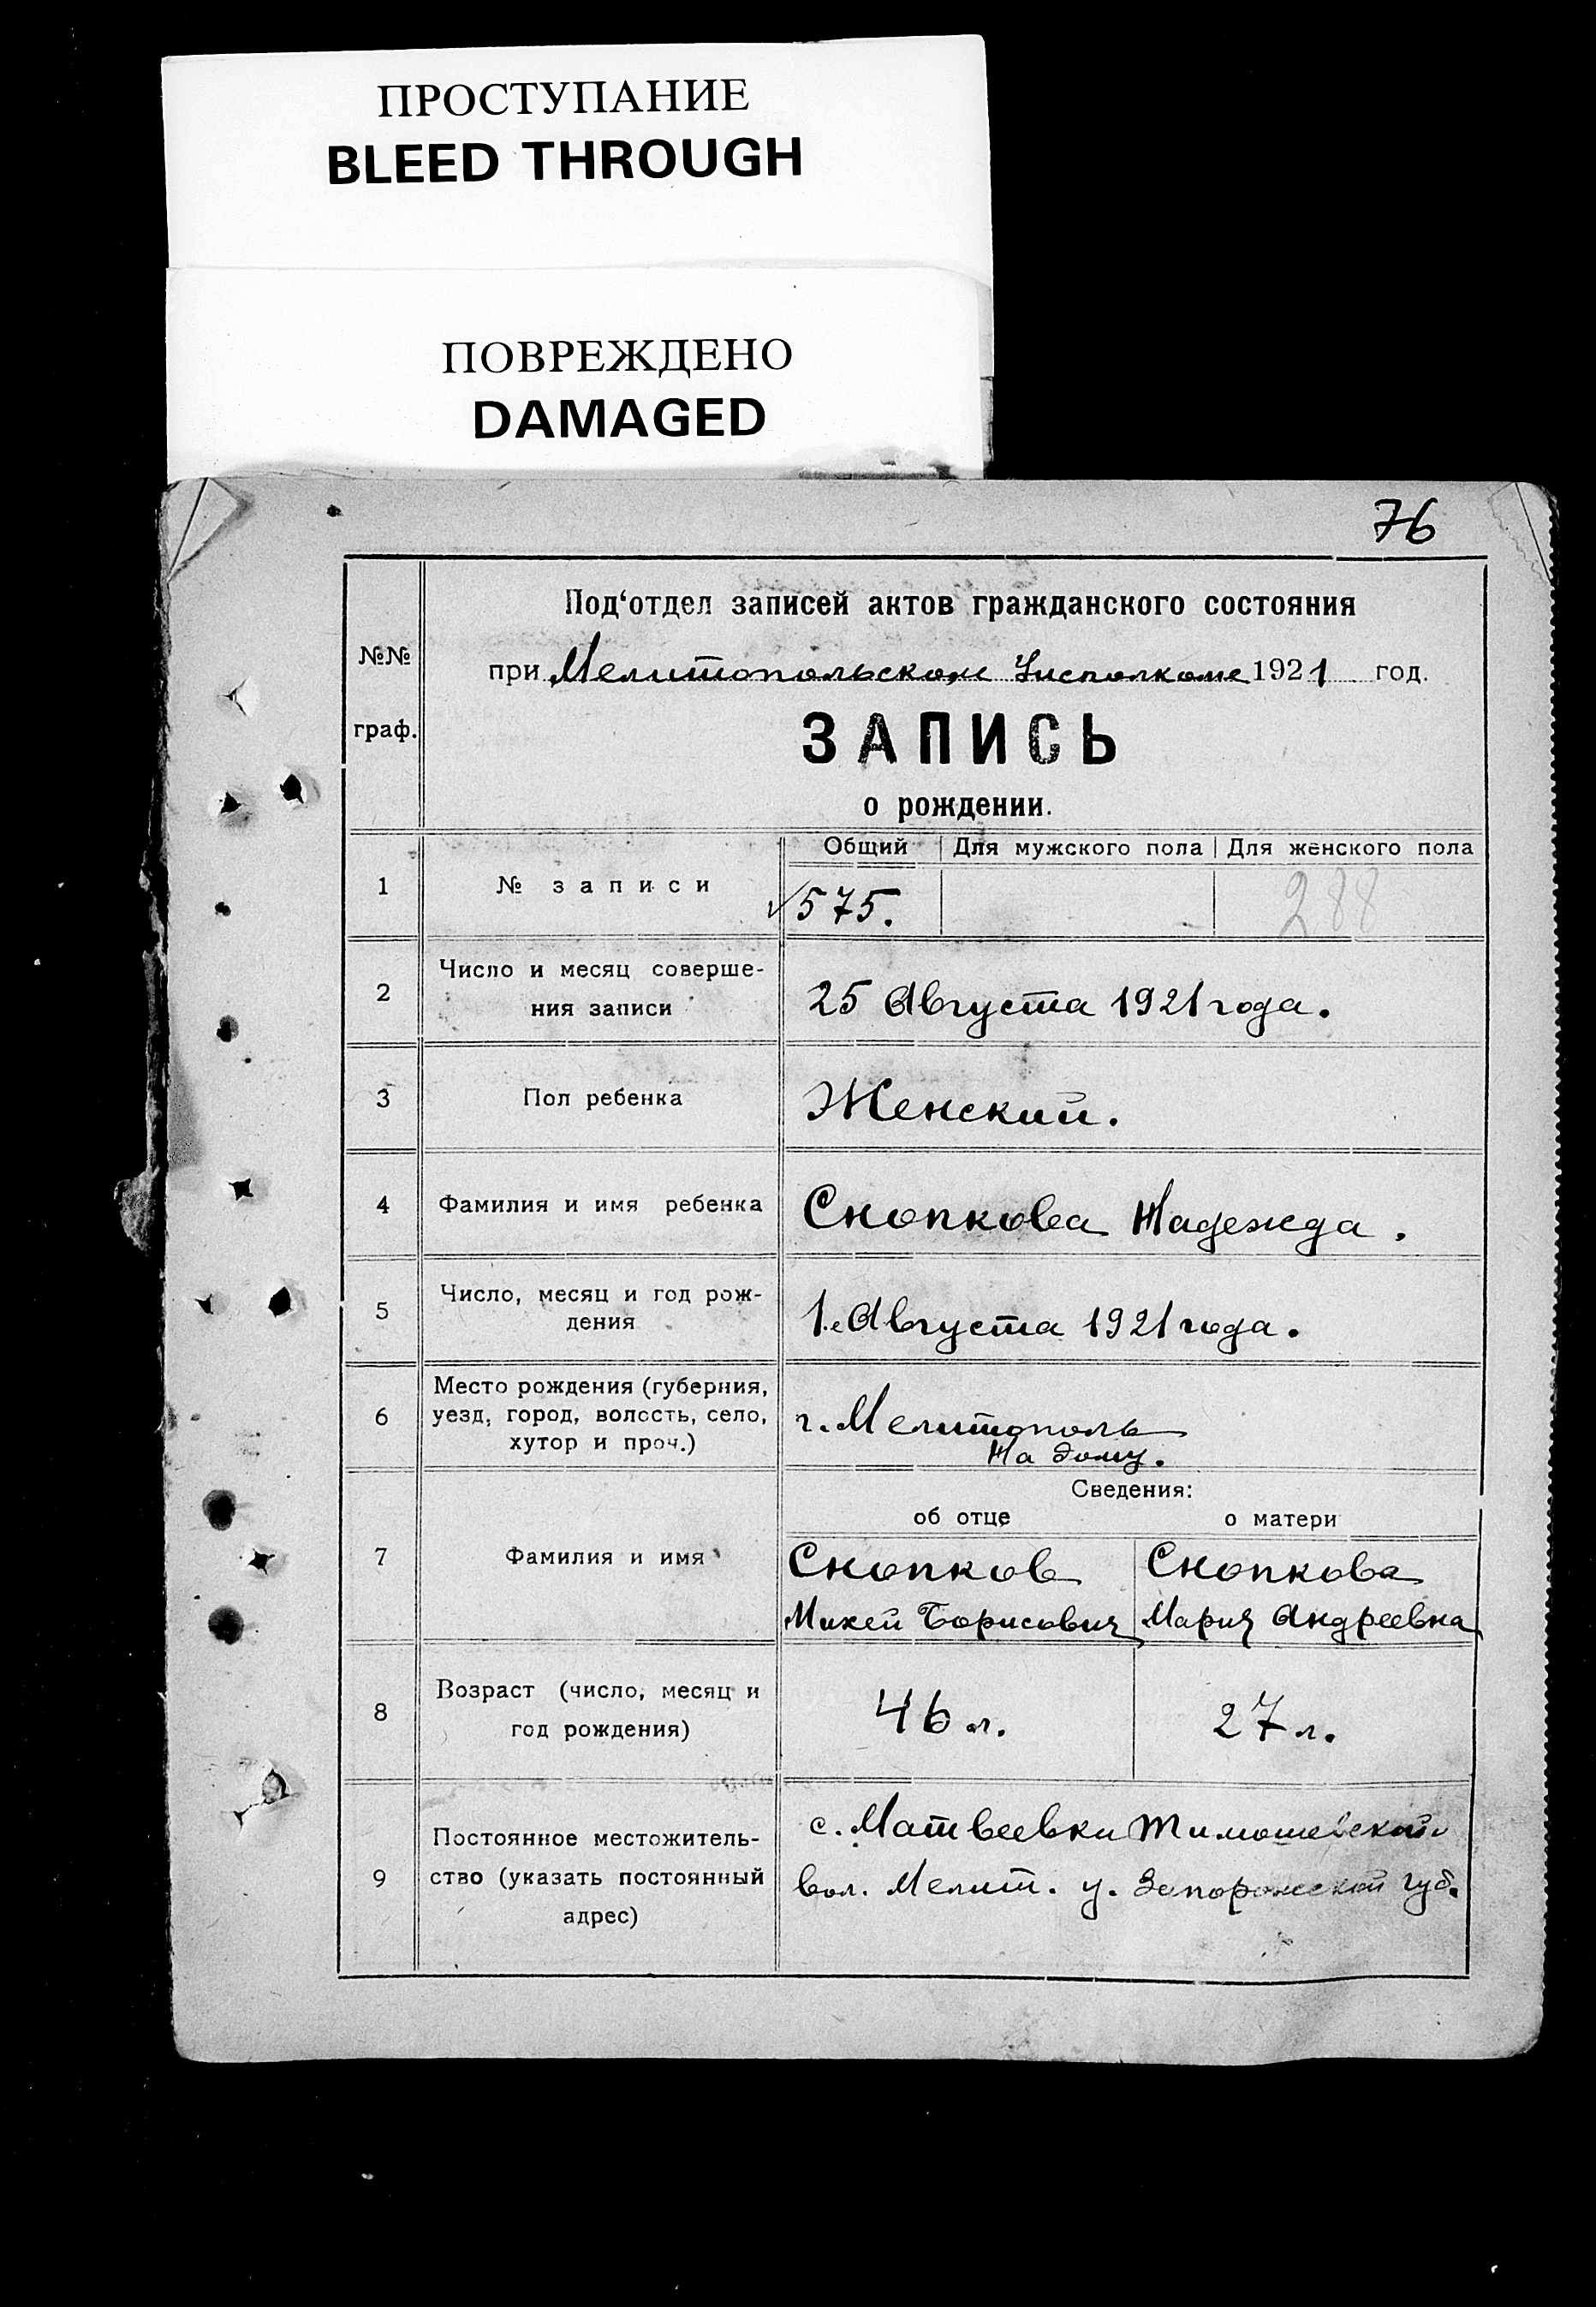 ПРОСТУПАНИЕ
BLEED THROUGH
ПОВРЕЖДЕНО
DAMAGED
76
№№
граф.
Под‘отдел записей актов гражданского состояния
при Мелитопольском Уисполкоме 1921 год.
ЗАПИСЬ
о рождении.
Общий Для мужского пола Для женского пола
1 № записи 575. 288
2 Число и месяц соверше-
ния записи 25 Августа 1921 года.
3 Пол ребенка Женский.
4 Фамилия и имя ребенка Снопкова Надежда.
5 Число, месяц и год рож-
дения 1.е Августа 1921 года.
6 Место рождения (губерния,
уезд, город, волость, село,
хутор и проч.) г. Мелитополь
На дому.
Сведения:
об отце о матери
7 Фамилия и имя Снопков Снопкова
Микей Борисович Мария Андреевна
8 Возраст (число, месяц и
год рождения) 46 л. 27 л.
9 Постоянное местожитель-
ство (указать постоянный
адрес) с. Матвеевки Тимошевской
вол. Мелит. у. Запорожской губ.